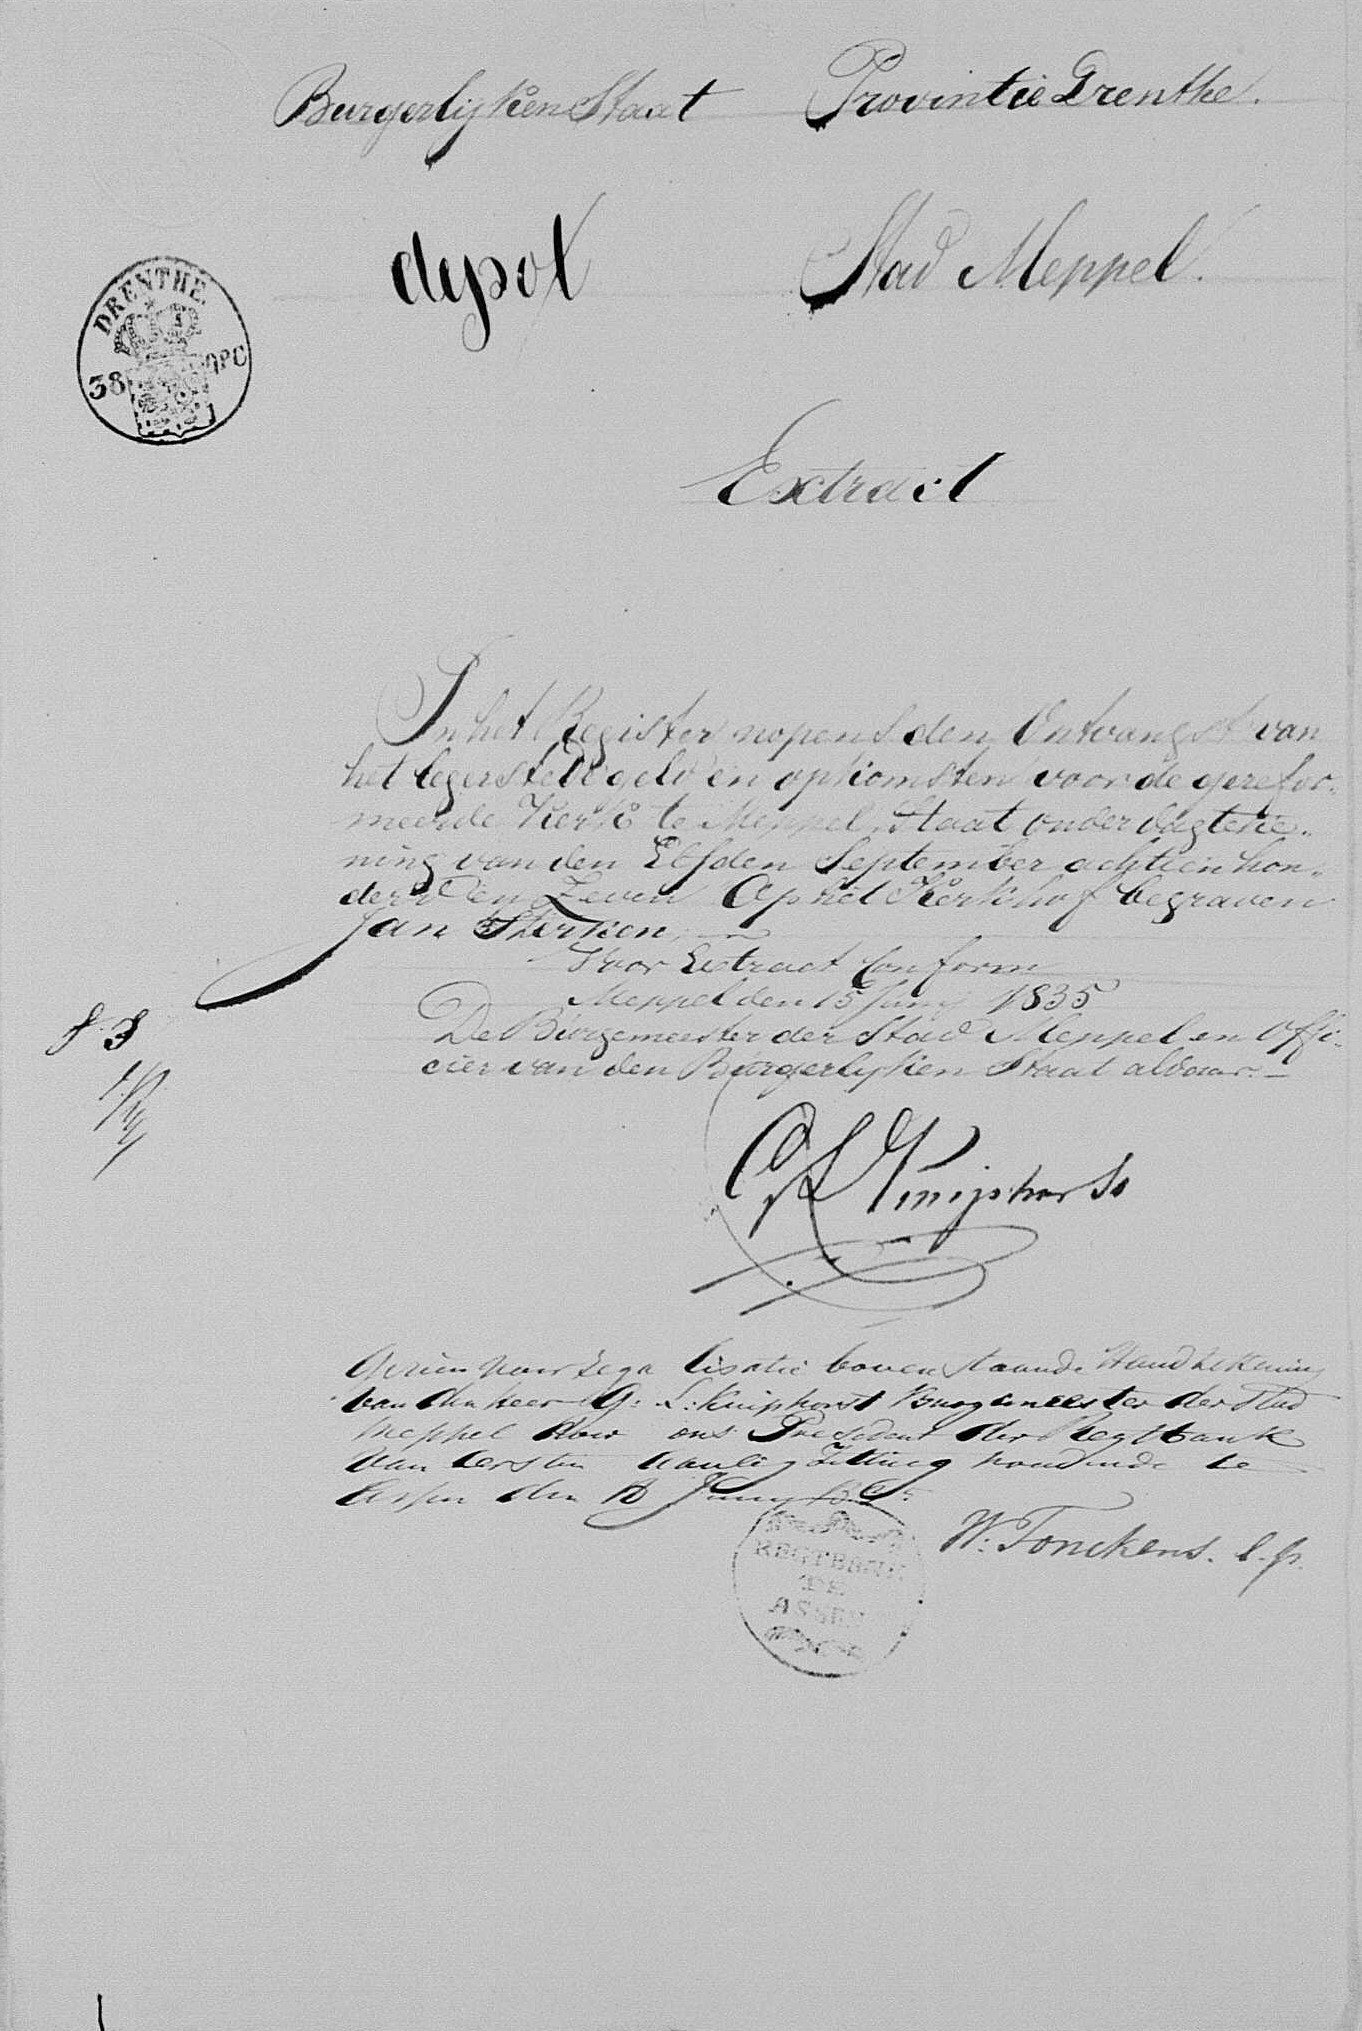 Burgerlyken Staat Provintie Drenthe.
depot Stad Meppel.
DRENTHE
38
Extract
In het Register nopens den Ontvangst van
het legerstede geld en opkomsten voor de gerefor-
meerde Kerk te Meppel, Staat onder dagteke-
ning van den Elfden September achttien hon-
derd en Zeven Op het Kerkhof begraven
Jan
Voor Extract Conform
Meppel den 15 Juny 1835
De Burgemeester der Stad Meppel en Offi-
cier van den Burgerlyken Staat aldaar.
Kniphorst
Gezien voor Legalisatie bovenstaande Handtekening
van den heer G: L: Kniphorst Burgemeester der stad
Meppel door ons President der Regtbank
van eersten aanleg Zitting houdende te
Assen den Juny
W: Tonckens. l. p.
REGTBANK
TE
ASSEN